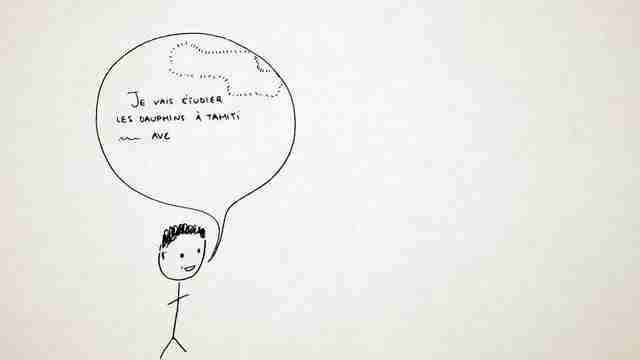 JE VAIS ÉTUDIER
LES DAUPHINS À TAHITI
AVE